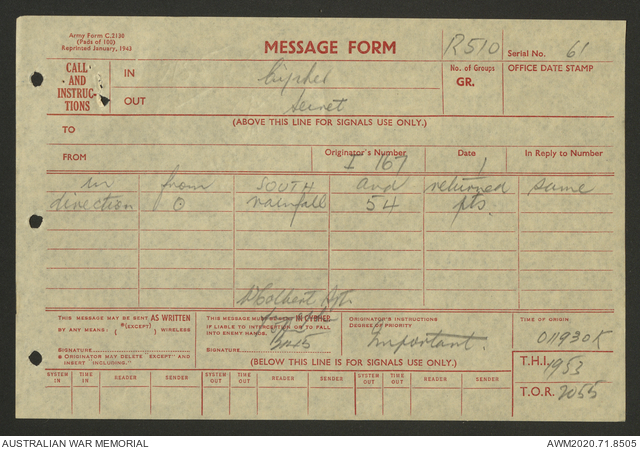 Army Form C.2138
(Pads of 100)
Reprinted January, 1943
MESSAGE FORM
R510
Serial No. 61
CALL
AND
INSTRUC-
TIONS
IN
Cypher
No. of Groups
GR.
OFFICE DATE STAMP
OUT
Secret
(ABOVE THIS LINE FOR SIGNALS USE ONLY.)
TO
FROM
Originator's Number
I 167
Date
1
In Reply to Number
in from SOUTH and returned same
direction ⊙ rainfall 54 pts.
THIS MESSAGE MAY BE SENT AS WRITTEN
BY ANY MEANS. *(EXCEPT) WIRELESS
SIGNATURE
* ORIGINATOR MAY DELETE EXCEPT" AND
INSERT "INCLUDING."
THIS MESSAGE MUST IN CYPHER
IF LIABLE TO INTERCEPTION OR TO FALL
INTO ENEMY HANDS.
SIGNATURE
2045
ORIGINATOR'S INSTRUCTIONS
DEGREE OF PRIORITY
Important.
TIME OF ORIGIN
011930K
(BELOW THIS LINE IS FOR SIGNALS USE ONLY.)
T.H.I. 1953
SYSTEM IN TIME IN READER SENDER SYSTEM OUT TIME OUT READER SENDER SYSTEM OUT TIME OUT READER SENDER
T.O.R. 2055
AUSTRALIAN WAR MEMORIAL
AWM2020.71.8505